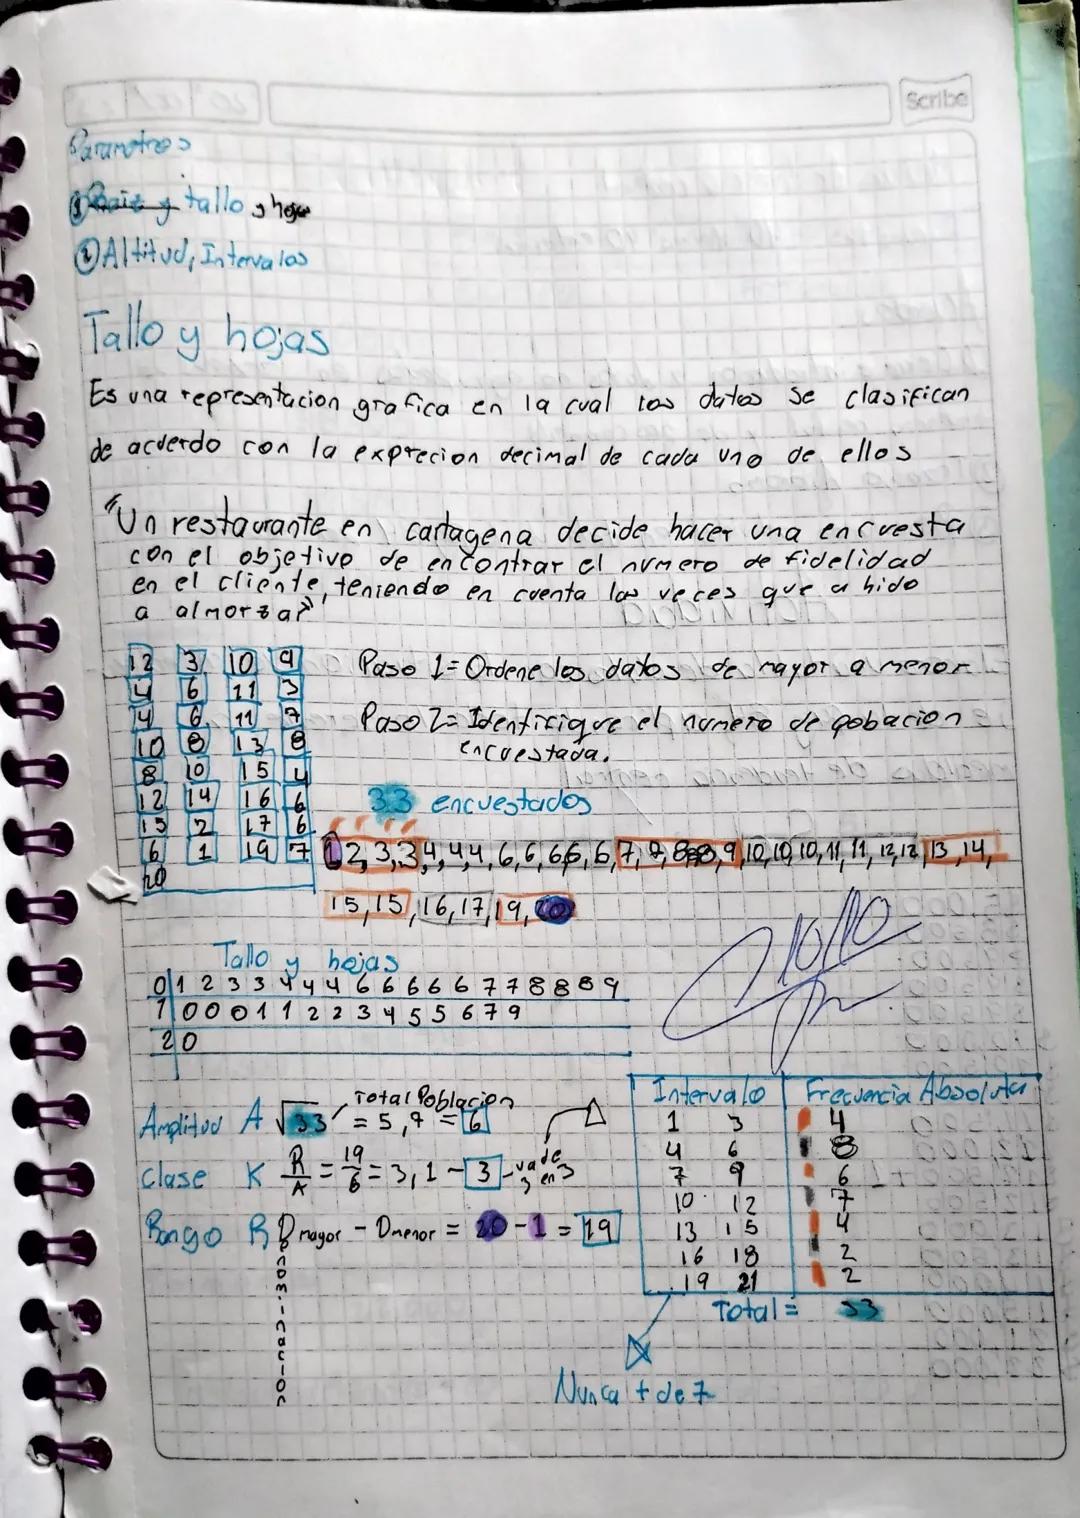 Scribe
Parametros
① Raiz y tallo y hojas
② Altitud, Intervalos
Tallo y hojas
Es una representacion grafica en la cual los datos se clasifican
de acuerdo con la exprecion decimal de cada uno de ellos
"Un restaurante en cartagena decide hacer una encuesta
con el objetivo de encontrar el numero de fidelidad
en el cliente, teniendo en cuenta las veces que a hido
a almorzar"
12 3 10 9
4 6 11 3
4 6 11 7
10 8 13 8
8 10 15 4
12 14 16 6
15 2 17 6
6 1 19 7
20
Paso 1= Ordene los datos de mayor a menor
Paso 2= Identifique el numero de pobacion
encuestada.
33 encuestados
1 2, 3, 3 4, 4, 4, 6, 6, 6, 6, 6, 7, 7, 8 8 8, 9, 10, 10, 10, 11, 11, 12, 12, 13, 14,
15, 15, 16, 17, 19, 20
10/10
Tallo y hojas
0 1 2 3 3 4 4 4 6 6 6 6 6 7 7 8 8 8 9
1 0 0 0 1 1 2 2 3 4 5 5 6 7 9
2 0
Total Poblacion
Amplitud A √33 = 5,7 = 6
Clase K R/A = 19/6 = 3,1 ~ 3 - va de 3 en 3
Rango R Dmayor - Dmenor = 20 - 1 = 19
Denominacion
Intervalo Frecuencia Absoluta
1 3 4
4 6 8
7 9 6
10 12 7
13 15 4
16 18 2
19 21 2
Total = 33
Nunca + de 7